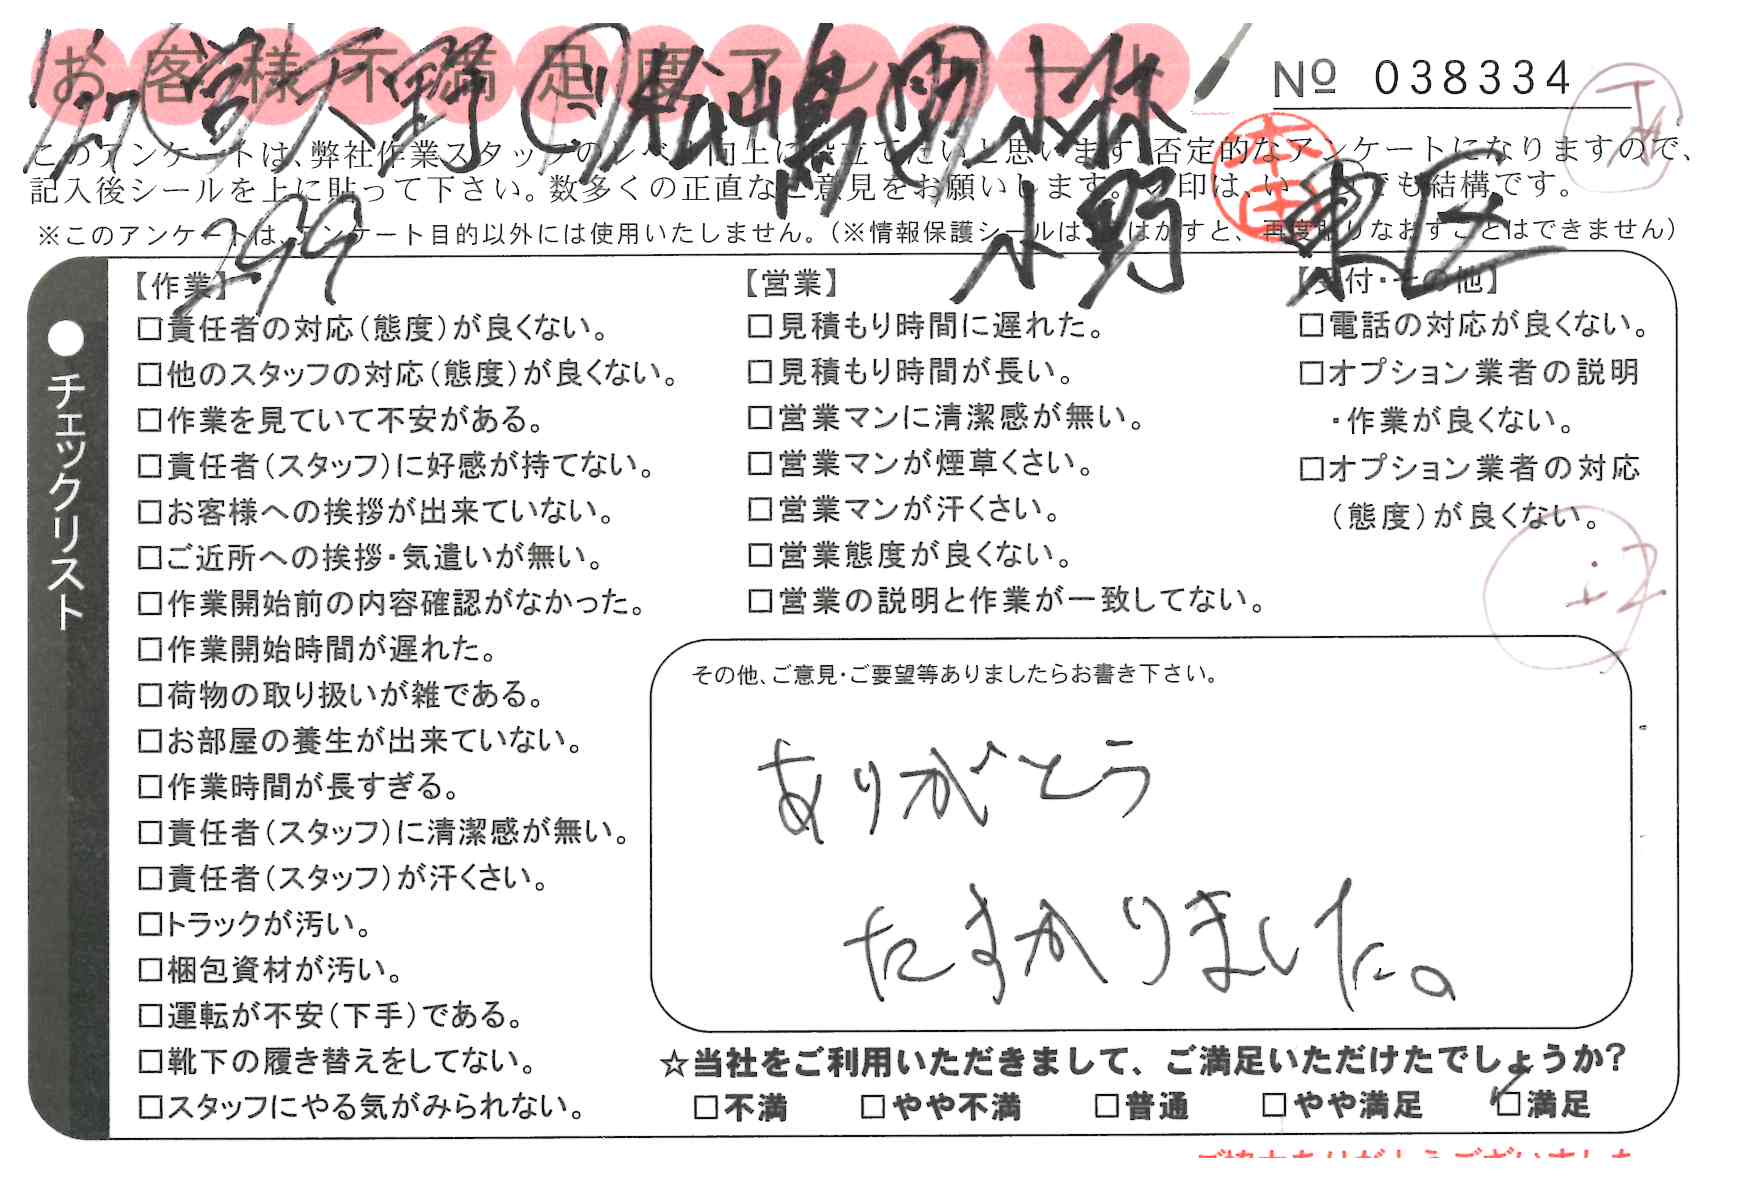 お客様不満足度アンケート
№ 038334
営 天野 松嶋 小林
小野 東区
299
本田
このアンケートは、弊社作業スタッフのレベル向上に役立てたいと思います。否定的なアンケートになりますので、
記入後シールを上に貼って下さい。数多くの正直なご意見をお願いします。✓印は、いくつでも結構です。
※このアンケートは、アンケート目的以外には使用いたしません。(※情報保護シールは1度はがすと、再度貼りなおすことはできません)
●チェックリスト
【作業】
□責任者の対応(態度)が良くない。
□他のスタッフの対応(態度)が良くない。
□作業を見ていて不安がある。
□責任者(スタッフ)に好感が持てない。
□お客様への挨拶が出来ていない。
□ご近所への挨拶・気遣いが無い。
□作業開始前の内容確認がなかった。
□作業開始時間が遅れた。
□荷物の取り扱いが雑である。
□お部屋の養生が出来ていない。
□作業時間が長すぎる。
□責任者(スタッフ)に清潔感が無い。
□責任者(スタッフ)が汗くさい。
□トラックが汚い。
□梱包資材が汚い。
□運転が不安(下手)である。
□靴下の履き替えをしてない。
□スタッフにやる気がみられない。
【営業】
□見積もり時間に遅れた。
□見積もり時間が長い。
□営業マンに清潔感が無い。
□営業マンが煙草くさい。
□営業マンが汗くさい。
□営業態度が良くない。
□営業の説明と作業が一致してない。
【受付・その他】
□電話の対応が良くない。
□オプション業者の説明
・作業が良くない。
□オプション業者の対応
(態度)が良くない。
その他、ご意見・ご要望等ありましたらお書き下さい。
ありがとう
たすかりました。
☆当社をご利用いただきまして、ご満足いただけたでしょうか?
□不満 □やや不満 □普通 □やや満足 ☑満足
ご協力ありがとうございました